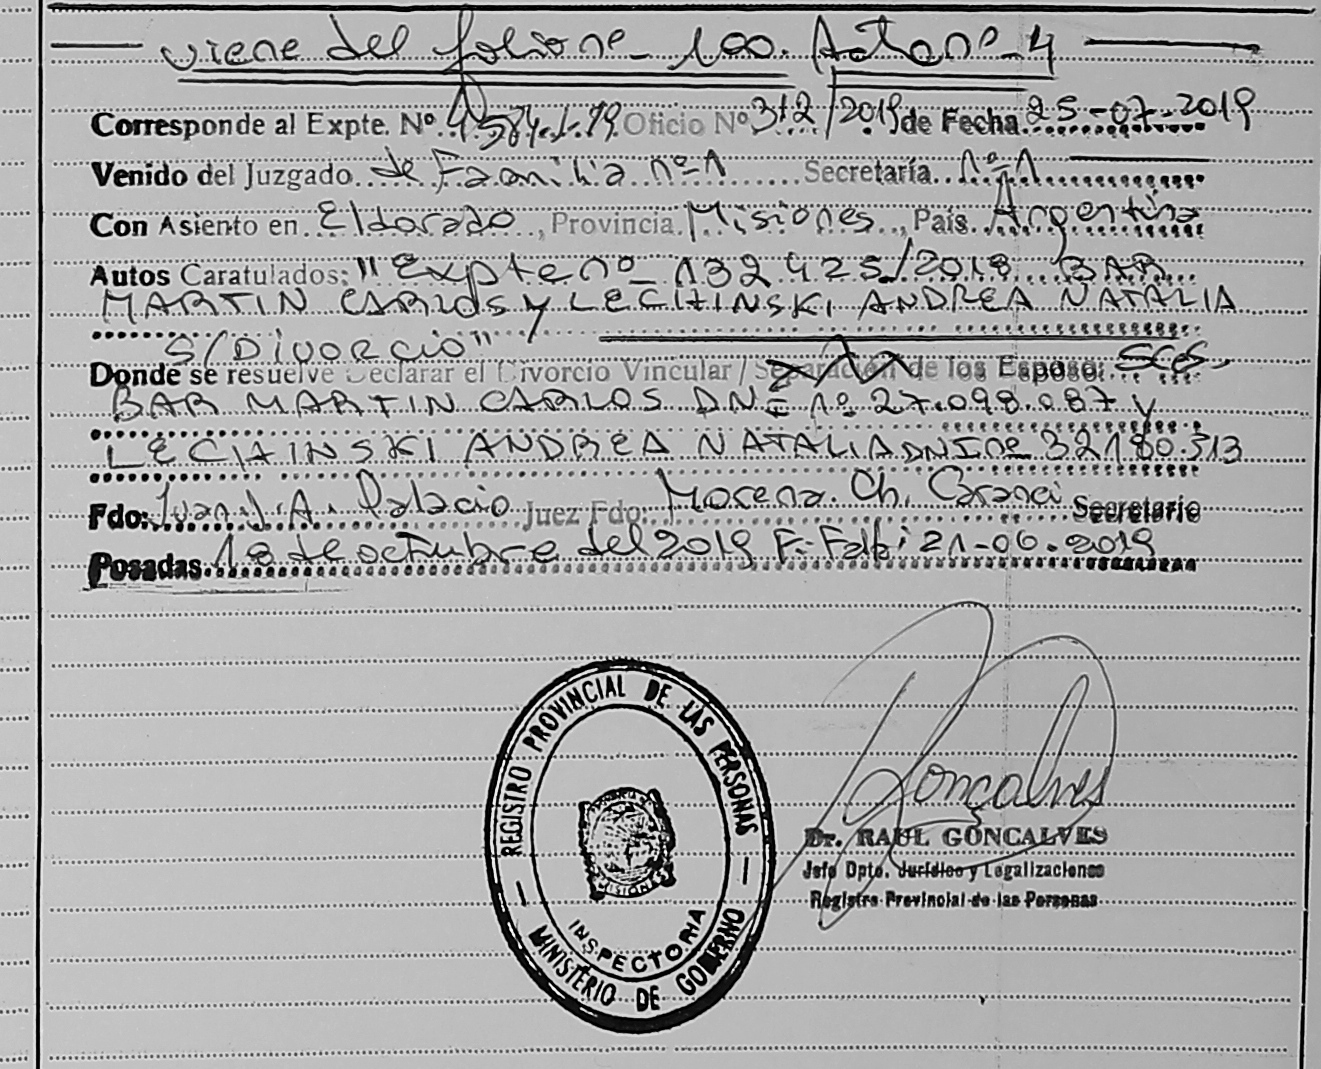 viene del folio nº 100. Acta nº 4
Corresponde al Expte. Nº 4584-J-19. Oficio Nº 312/2019 de Fecha 25-07-2019
Venido del Juzgado de Familia nº 1 Secretaría nº 1
Con Asiento en Eldorado, Provincia Misiones, País Argentina
Autos Caratulados: "Expte nº 132425/2018 BAR
MARTIN CARLOS y LECHINSKI ANDREA NATALIA
S/DIVORCIO"
Donde se resuelve Declarar el Divorcio Vincular / Separación de los Esposos: Sres.
BAR MARTIN CARLOS DNI nº 27.098.087 y
LECHINSKI ANDREA NATALIA DNI nº 32180.313
Fdo: Juan J. A. Palacio Juez Fdo: Morena Ch. Secretario
Posadas 18 de octubre del 2019 F. 21-06-2019
REGISTRO PROVINCIAL DE LAS PERSONAS
MISIONES
INSPECTORIA
MINISTERIO DE GOBIERNO
Goncalves
Dr. RAUL GONCALVES
Jefe Dpto. Jurídico y Legalizaciones
Registro Provincial de las Personas